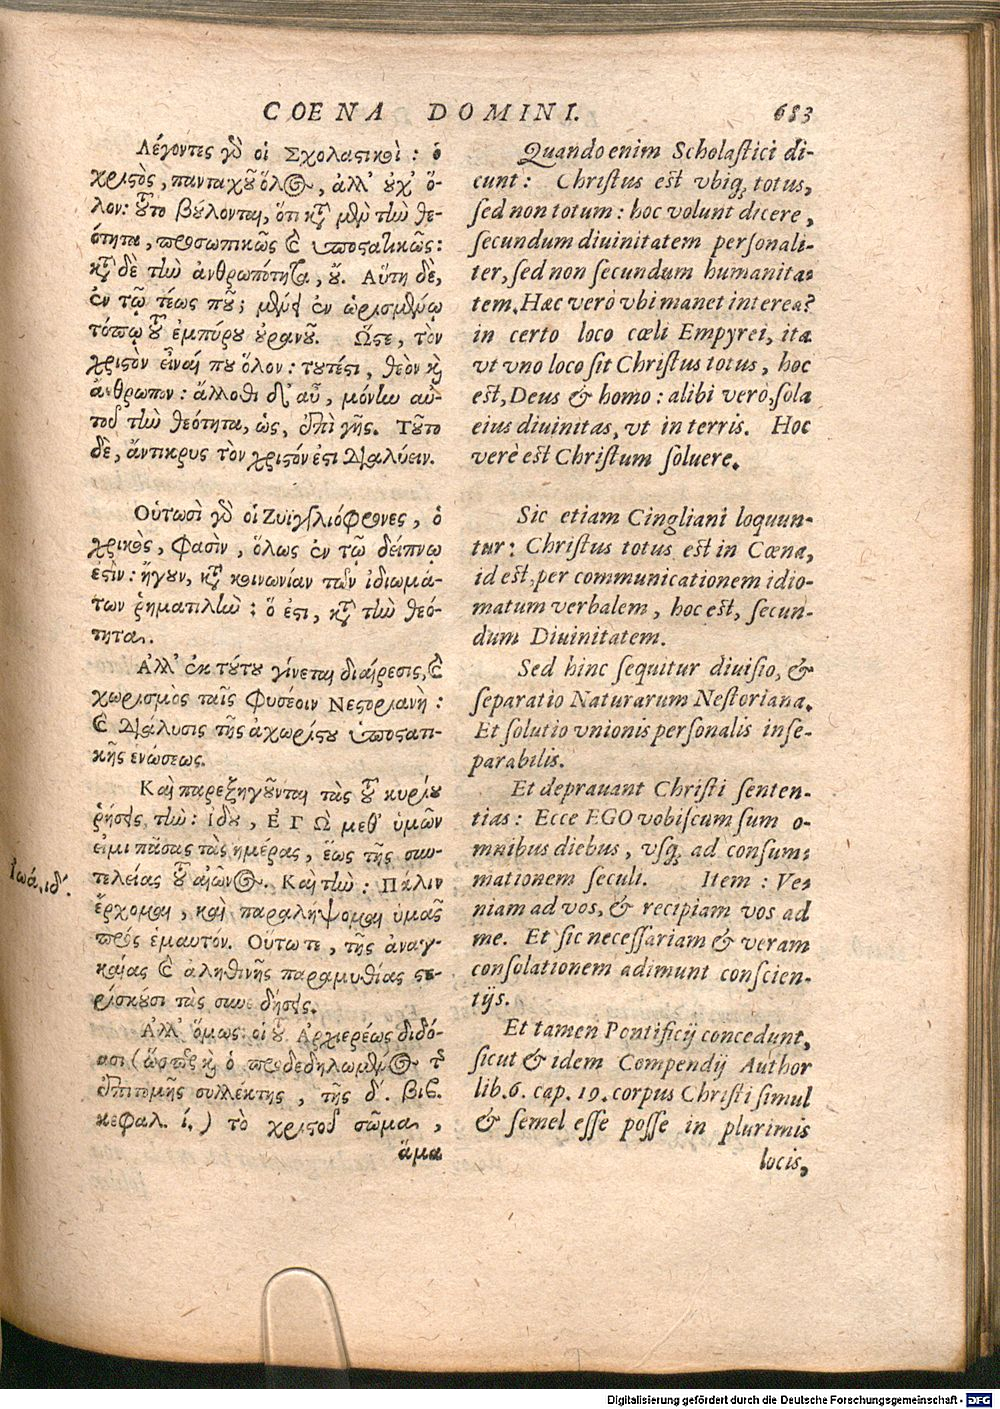 COENA DOMINI. 683
Λέγοντες γδ οἱ Σχολαςικοὶ: ὁ
χριςὸς, πανταχοῦ ὅλος, ἀλλ' οὐχ ὅ-
λον: τοῦτο βούλονται, ὅτι κατὰ μὲν τὴν θε-
ότητα, προσωπικῶς καὶ ὑποςατικῶς:
κατὰ δὲ τὴν ἀνθρωπότητα, οὔ. Αὕτη δὲ,
ἐν τῷ τέως ποῦ; μένει ἐν ὡρισμένῳ
τόπῳ τοῦ ἐμπύρου οὐρανοῦ. Ὥςε, τὸν
χριςὸν εἶναί που ὅλον: τουτέςι, θεὸν καὶ
ἄνθρωπον: ἄλλοθι δ' αὖ, μόνην αὐ-
τοῦ τὴν θεότητα, ὡς, ἐπὶ γῆς. Τοῦτο
δὲ, ἄντικρυς τὸν χριςόν ἐςι διαλύειν.
Οὑτωσὶ γδ οἱ Ζυϊγγλιόφρονες, ὁ
χριςὸς, φασὶν, ὅλως ἐν τῷ δείπνῳ
ἐςίν: ἤγουν, κατὰ κοινωνίαν τῶν ἰδιωμά-
των ῥηματικὴν: ὅ ἐςι, κατὰ τὴν θεό-
τητα.
Ἀλλ' ἐκ τούτου γίνεται διαίρεσις, καὶ
χωρισμὸς ταῖς φυσέοιν Νεςοριανὴ:
καὶ διάλυσις τῆς ἀχωρίςου ὑποςατι-
κῆς ἑνώσεως.
Καὶ παρεξηγοῦνται τὰς τοῦ κυρίου
ῥήσεις, τὴν: ἰδοὺ, ΕΓΩ μεθ' ὑμῶν
εἰμι πάσας τὰς ημέρας, ἕως τῆς συν-
τελείας τοῦ αἰῶνος. Καὶ τὴν: Πάλιν
ἔρχομαι, καὶ παραλήψομαι ὑμᾶς
πρὸς ἐμαυτόν. Οὕτω τε, τῆς ἀναγ-
καίας καὶ ἀληθινῆς παραμυθίας ςε-
ρίσκουσι τὰς συνειδήσεις.
Ἀλλ' ὅμως οἱ τοῦ Ἀρχιερέως διδό-
ασι (ὥσπερ καὶ ὁ προδεδηλωμένος τῆς
ἐπιτομῆς συλλέκτης, τῆς δ'. βιβ.
κεφαλ. ί.) τὸ χριςοῦ σῶμα,
ἅμα
Ἰωά. ιδ'.
Quando enim Scholastici di-
cunt: Christus est vbiq; totus,
sed non totum: hoc volunt dicere,
secundum diuinitatem personali-
ter, sed non secundum humanita-
tem. Haec verò vbi manet interea?
in certo loco cœli Empyrei, ita
vt vno loco sit Christus totus, hoc
est, Deus & homo: alibi verò, sola
eius diuinitas, vt in terris. Hoc
verè est Christum soluere.
Sic etiam Cingliani loquun-
tur: Christus totus est in Cœna,
id est, per communicationem idio-
matum verbalem, hoc est, secun-
dum Diuinitatem.
Sed hinc sequitur diuisio, &
separatio Naturarum Nestoriana.
Et solutio vnionis personalis inse-
parabilis.
Et deprauant Christi senten-
tias: Ecce EGO vobiscum sum o-
mnibus diebus, vsq; ad consum-
mationem seculi. Item: Ve-
niam ad vos, & recipiam vos ad
me. Et sic necessariam & veram
consolationem adimunt conscien-
tijs.
Et tamen Pontificij concedunt,
sicut & idem Compendij Author
lib. 6. cap. 19. corpus Christi simul
& semel esse posse in plurimis
locis,
Digitalisierung gefördert durch die Deutsche Forschungsgemeinschaft - DFG